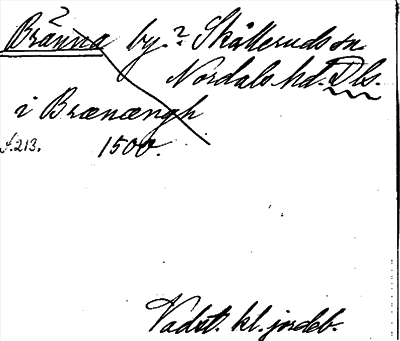 ? Bränna by.? Skålleruds sn
Nordals hd. Dls.
i Brænængh
S. 213. 1500.
Vadst. kl. jordeb.